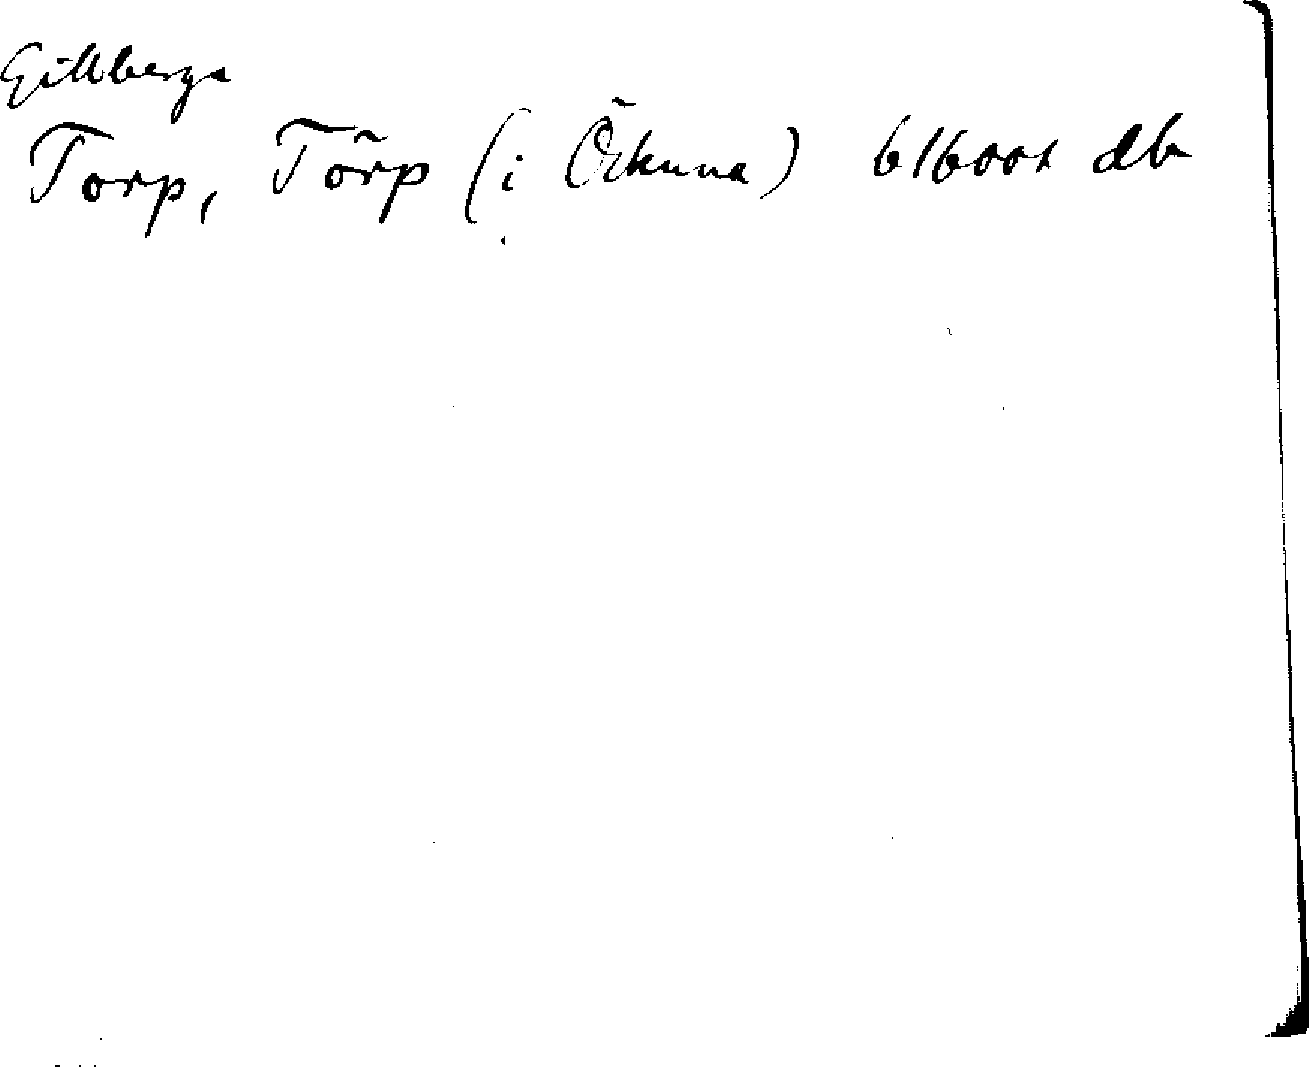 Gillberga
Torp, Törp (i Örkuna) 616001 db